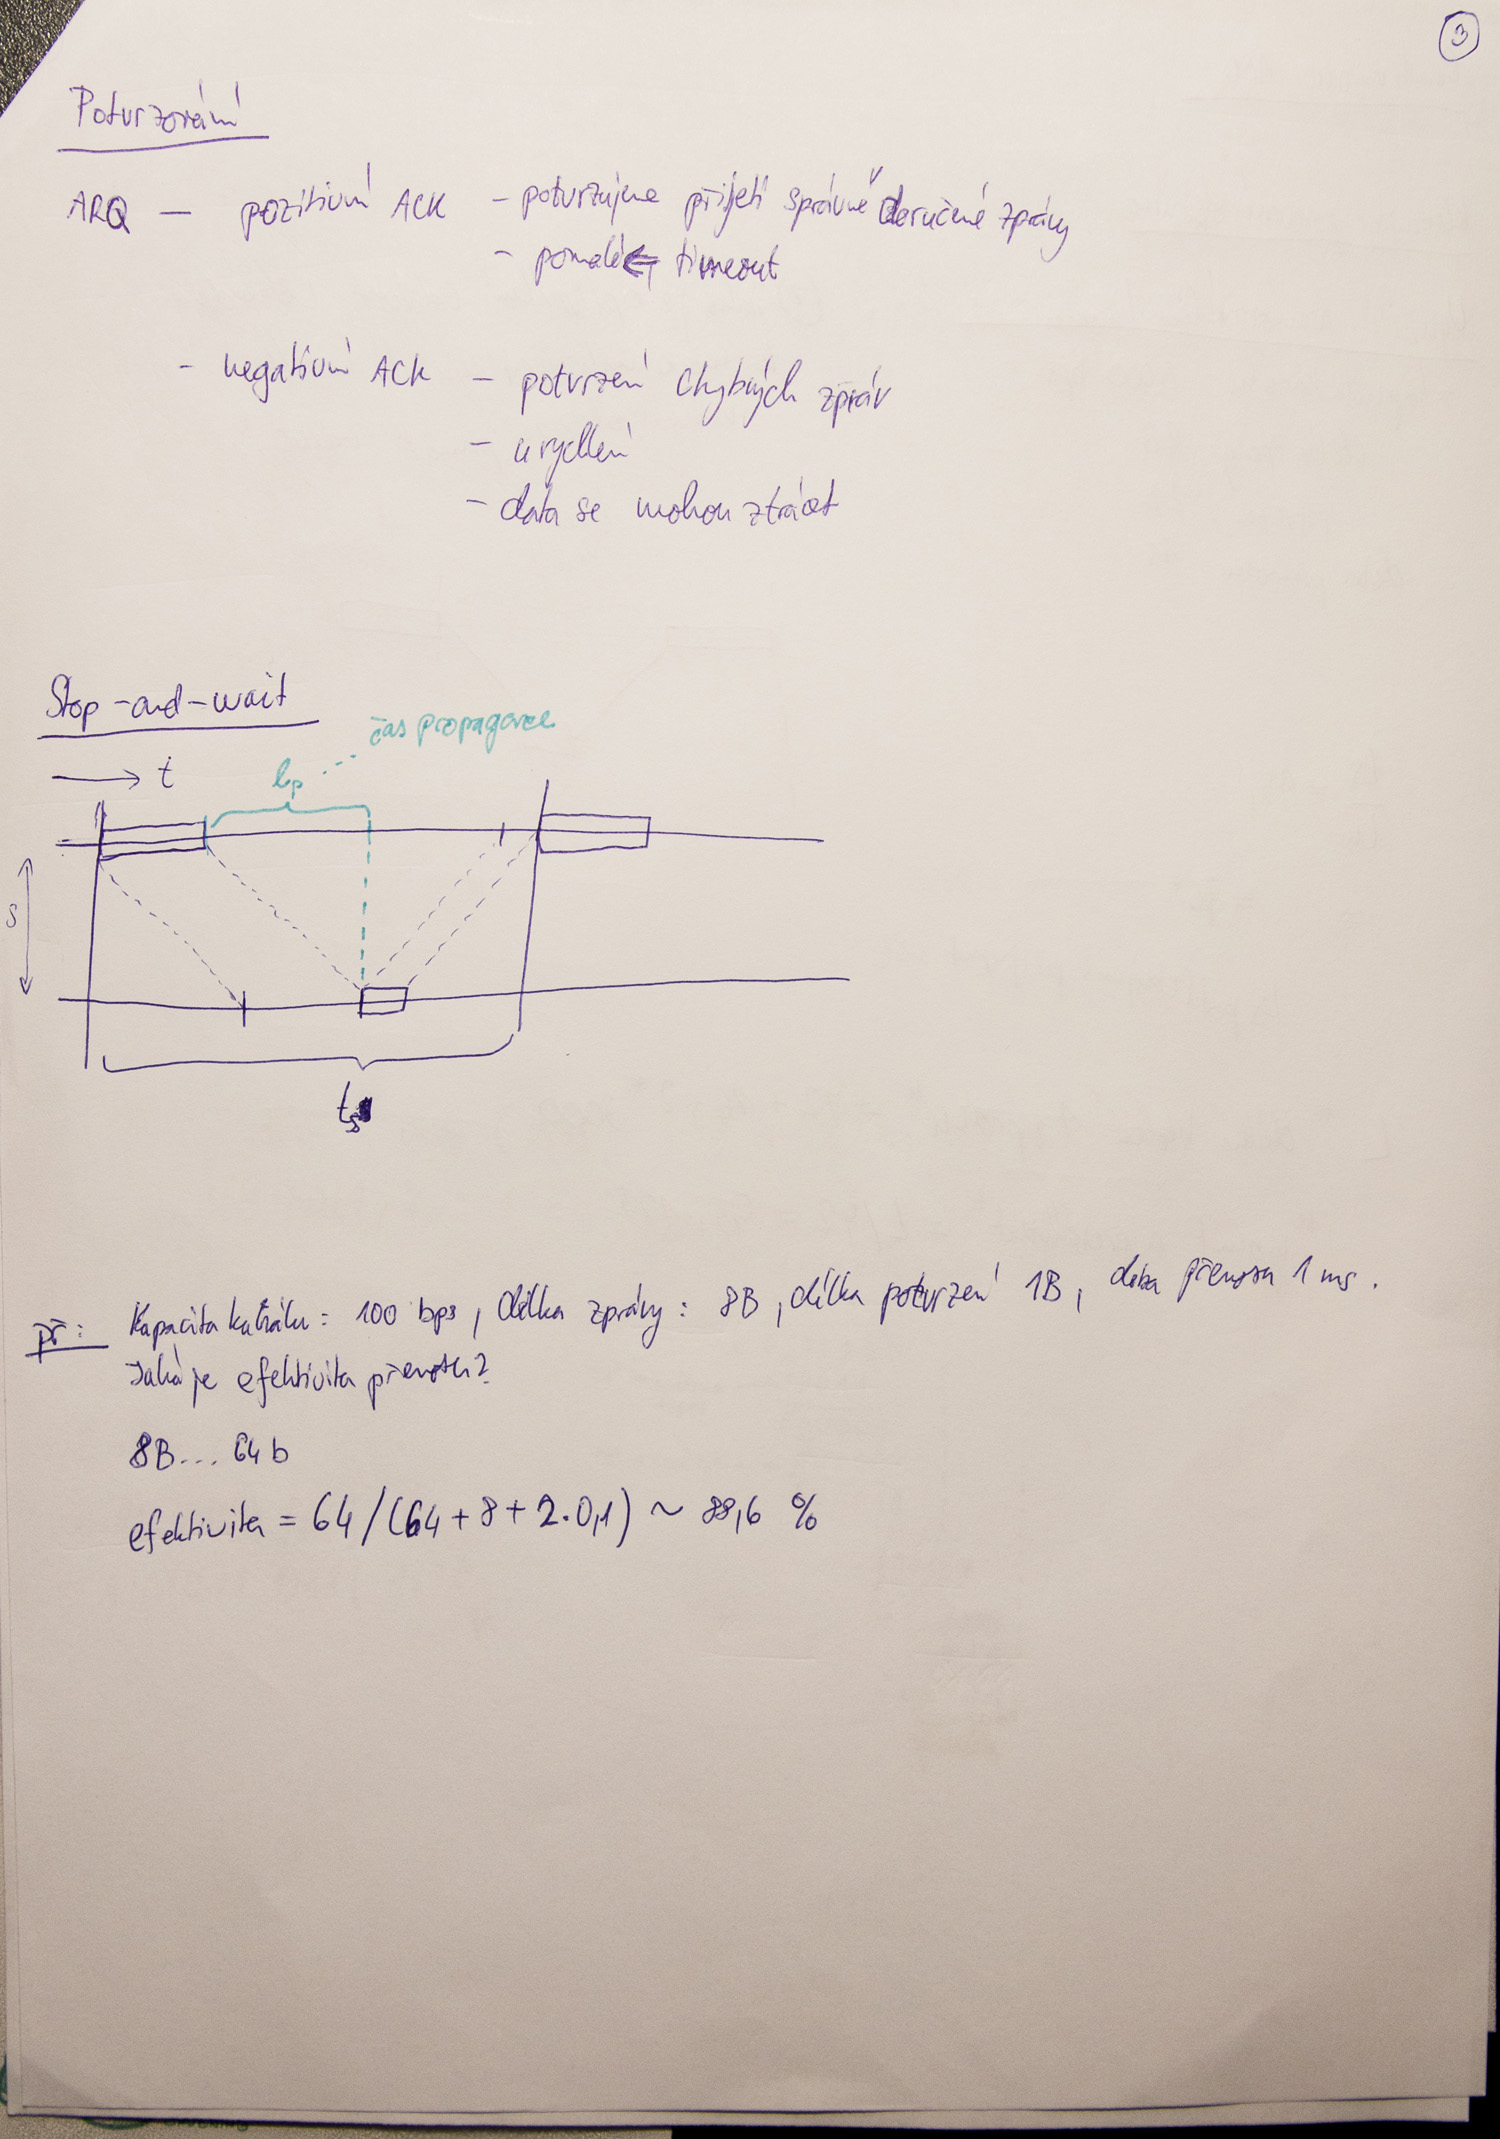 3
Potvrzování
ARQ — pozitivní ACK – potvrzujeme přijetí správně doručené zprávy
– pomalé ⇐ timeout
– negativní ACK – potvrzení chybných zpráv
– urychlení
– data se mohou ztrácet
Stop-and-wait
čas propagace
t
tp
s
ts
př: Kapacita kanálu = 100 bps, délka zprávy: 8B, délka potvrzení 1B, doba přenosu 1 ms.
Jaká je efektivita přenosu?
8B... 64 b
efektivita = 64/(64+8+2·0,1) ~ 88,6 %